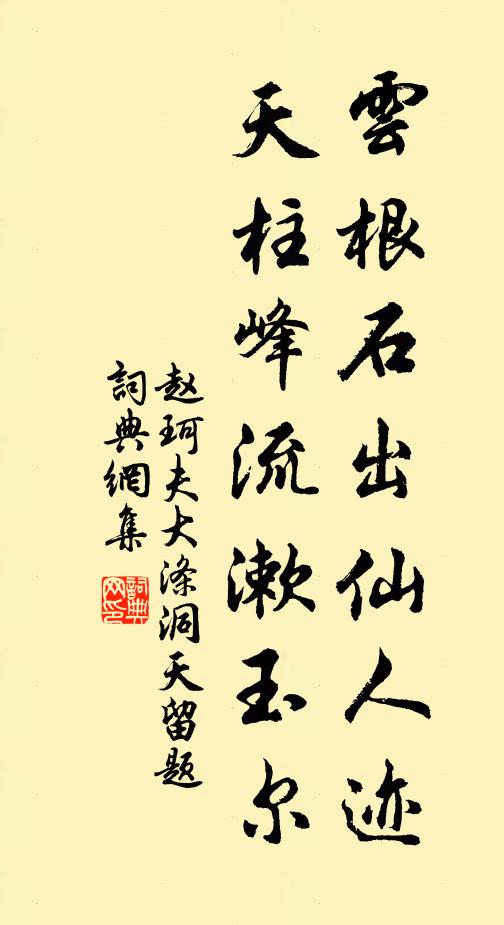 雲根石出仙人迹
天柱峰流漱玉尔
赵珂夫大涤洞天留题
詞典網集
詞典網印